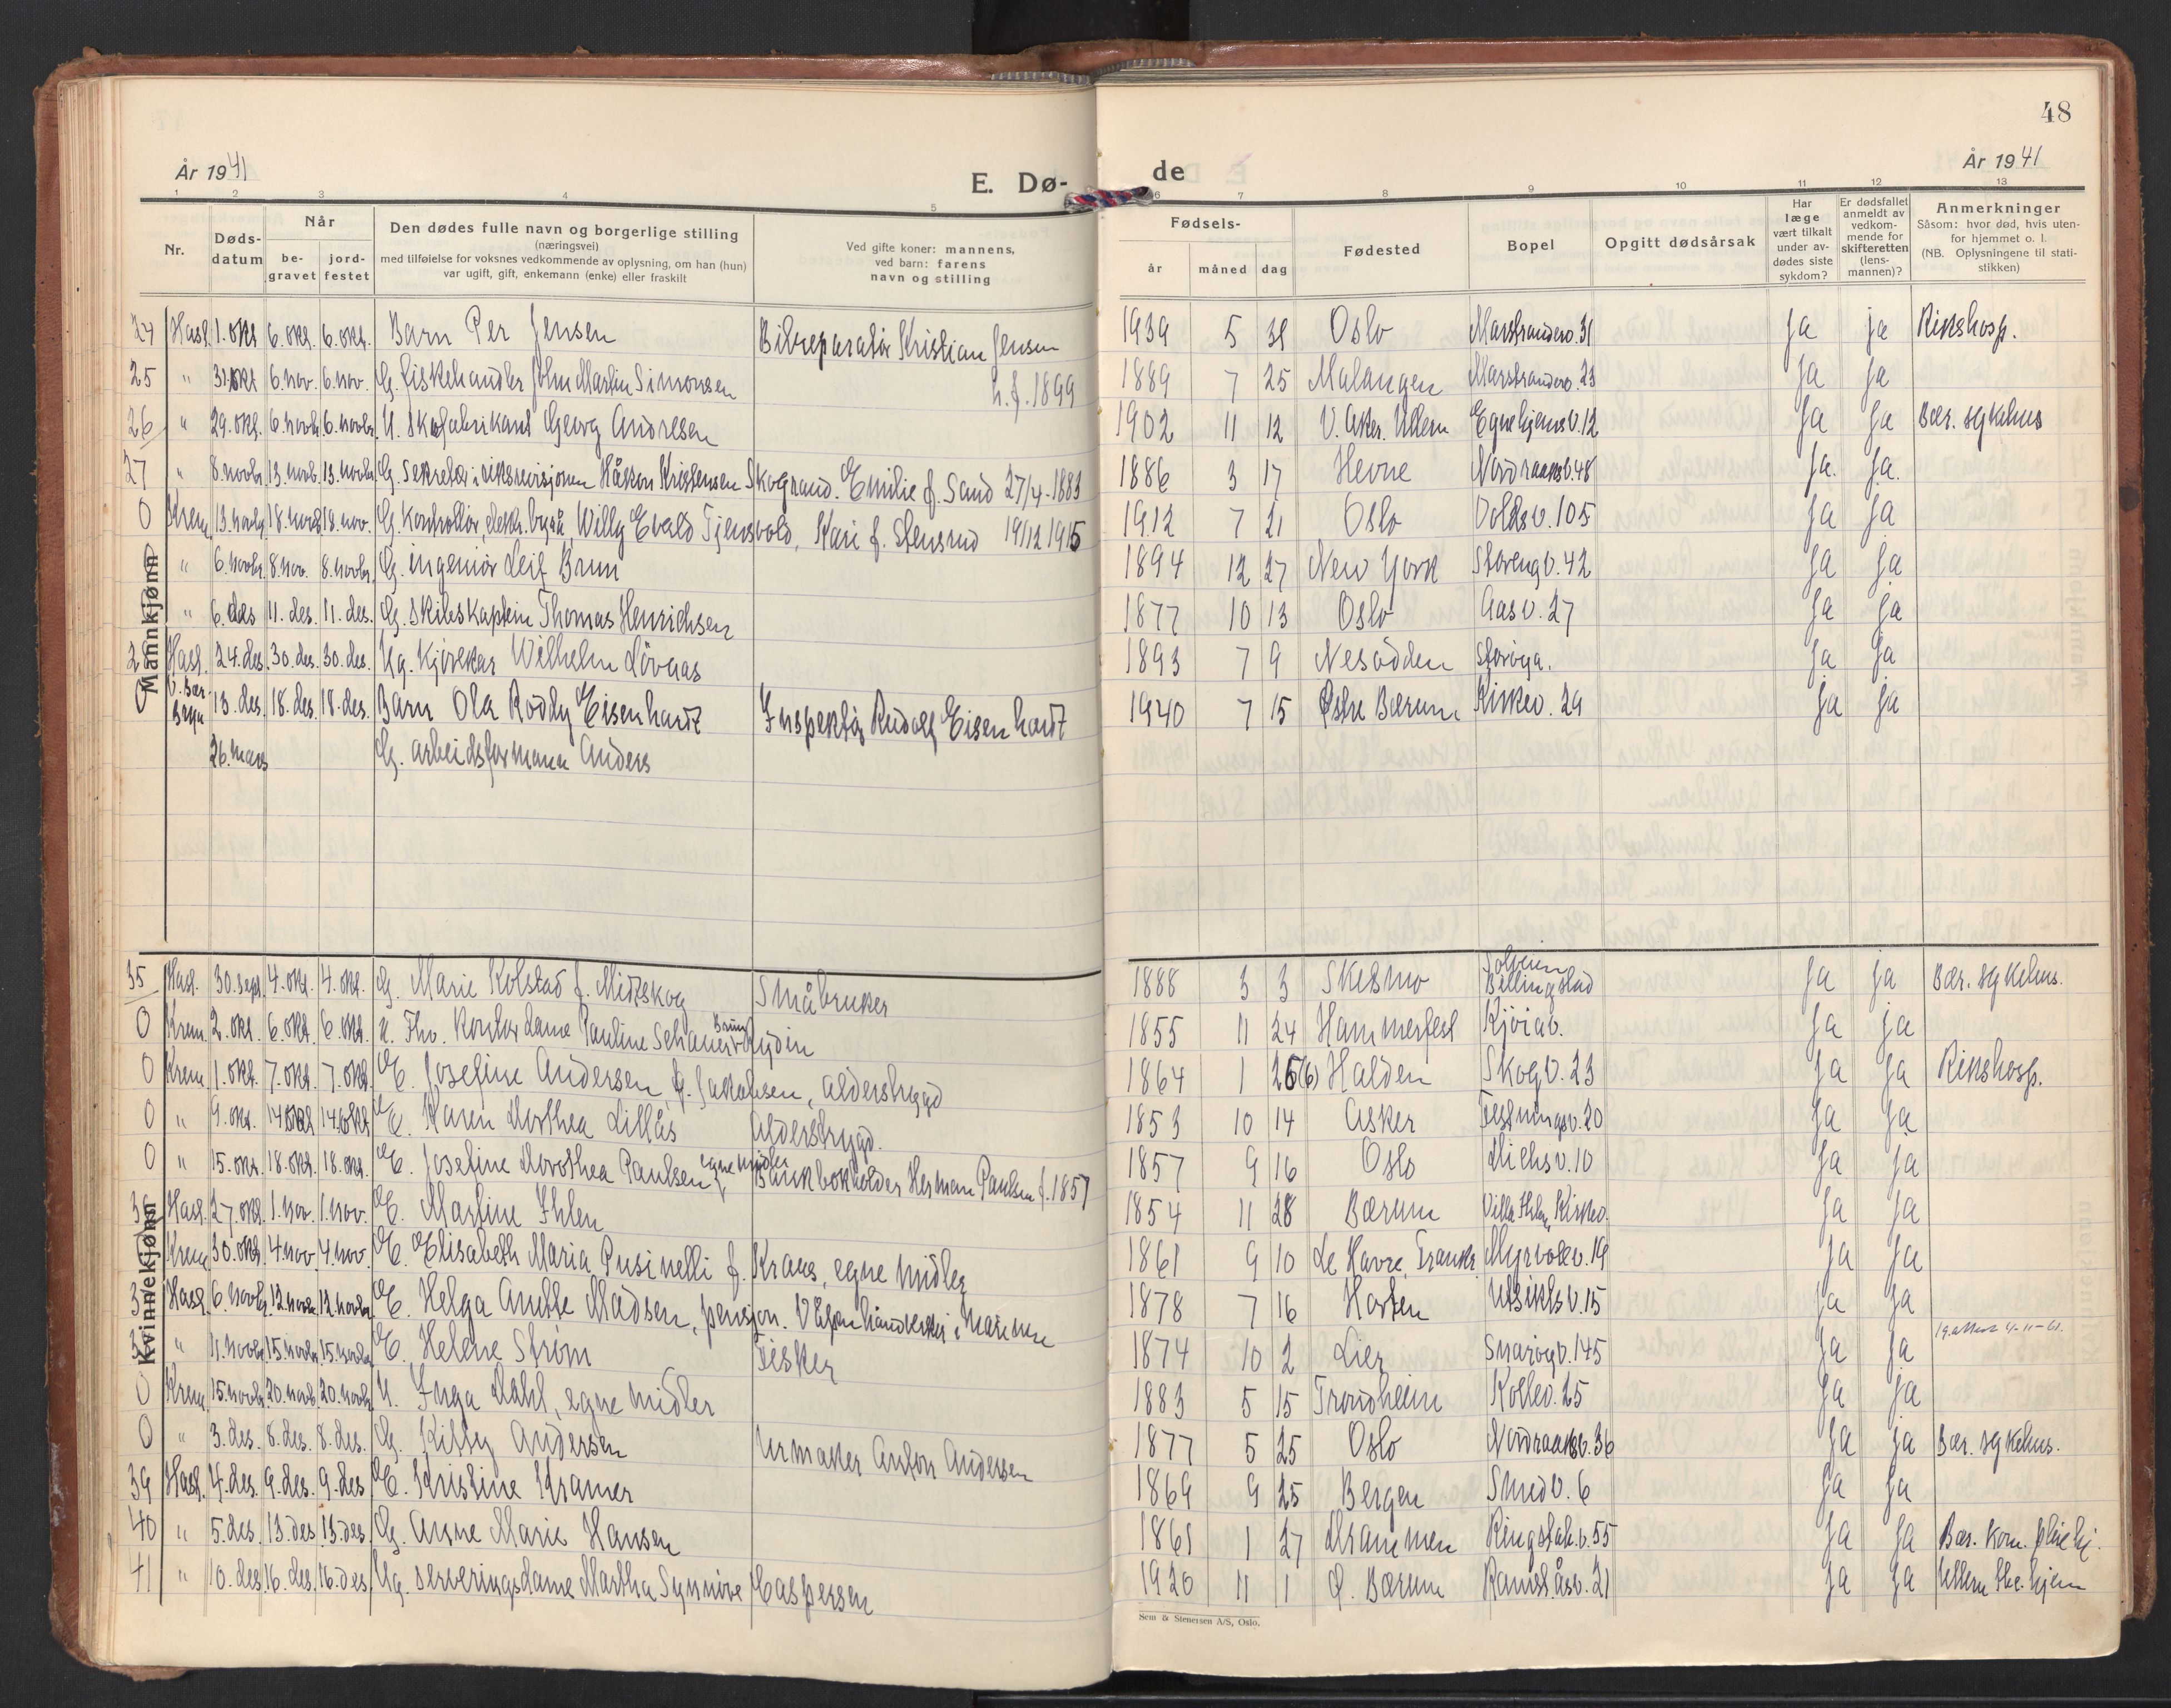 48
År 1941
E. Dø-
de
År 1941
1 2 3 4 5 6 7 8 9 10 11 12 13
Nr.
Døds-
datum
Når
be-
gravet
jord-
festet
Den dødes fulle navn og borgerlige stilling
(næringsvei)
med tilføielse for voksnes vedkommende av oplysning, om han (hun)
var ugift, gift, enkemann (enke) eller fraskilt
Ved gifte koner: mannens,
ved barn: farens
navn og stilling
Fødsels-
år
måned
dag
Fødested
Bopel
Opgitt dødsårsak
Har
læge
vært tilkalt
under av-
dødes siste
sykdom?
Er dødsfallet
anmeldt av
vedkom-
mende for
skifteretten
(lens-
mannen)?
Anmerkninger
Såsom: hvor død, hvis uten-
for hjemmet o. l.
(NB. Oplysningene til stati-
stikken)
Mannkjønn
24 Hasl. 1. okt. 6. okt. 6. okt. Barn Per Jensen Bilreparatør Kristian Jensen 1939 5 31 Oslo Marstranderv. 31 Ja ja Rikshosp.
25 " 31 okt 6. nov. 6. nov. G. fiskehandler John Martin Simonsen h. f. 1899 1889 7 25 Malangen Marstranderv. 23 Ja Ja
26 " 29. okt. 6. novb. 6. novbr. U. Skofabrikant Georg Andresen 1902 11 12 V. Aker. Ullern Egnehjemsv. 12 Ja Ja Bær. sykehus
27 " 8. novbr. 13. novb. 13. novbr. G. Sekretær i riksrevisjonen Håkon Kristensen Skogrand. Emilie f. Sand 27/4-1883 1886 3 17 Hevne Nordraaksv. 48 Ja. Ja.
0 Krem. 13. novbr. 18. novb. 18. nov. G. Kontrollør, Willy Evald Tjensvold, Kari f. Stensrud 19/12 1915 1912 7 21 Oslo Voldsv. 105 Ja Ja
" 6. novbr. 8. nov. 8. novbr. G. ingeniør Leif Brun 1894 12 27 New York Storengv. 42 Ja Ja
" 6. des 11. des. 11. des. G. Skibskaptein Thomas Henrichsen 1877 10 13 Oslo Aasv. 27 Ja Ja
28 Hasl. 24. des. 30. des. 30. des. Ug. Kjørekar Wilhelm Løvaas 1893 7 9 Nesodden Storøya. Ja Ja
0 V. Bær. Bryn 13. des. 18. des. 18. des. Barn Ola Roddy Eisenhardt Inspektør Rudolf Eisenhardt 1940 7 15 Østre Bærum Kirkev. 29 ja Ja
26. mars G. arbeidsformann Anders
Kvinnekjønn
35 Hasl. 30. sept. 4. okt. 4. okt. G. Marie Kolstad f. Midtskog Småbruker 1888 3 3 Skesmo Solveien Billingstad Ja ja Bær. sykehus.
0 Krem. 2. okt 6. okt. 6. okt. U. Fhv. kontordame Pauline Brun 1855 11 24 Hammerfest Kjøiav. Ja ja
0 Krem 1. okt. 7. okt. 7. okt. E. Josefine Andersen, f. Jakobsen, alderstrygd 1864 1 26(6) Halden Skogv. 23 Ja Ja Rikshosp.
0 " 9. okt. 14 okt 14 okt E. Karen Dorthea Lillås Alderstrygd. 1853 10 14 Asker Festningsv. 20 Ja Ja
0 " 15. okt. 18. okt. 18. okt. E. Josefine Dorothea Paulsen, egne midler Bankbokholder Herman Paulsen f. 1857 1857 9 16 Oslo Michsv. 10 Ja ja
36 Hasl. 27. okt. 1. nov. 1. nov. E. Martine Ihlen 1854 11 28 Bærum Villa Ihlen, Kirkev. Ja Ja
0 Krem 30. okt. 4. nov 4. nov. E. Elisabeth Maria Pusinelli f. Kraus, egne midler 1861 9 10 Le Havre, Frankr. Myrvollv. 19 Ja Ja
37 Hasl. 6. novbr. 12. novbr. 12. novbr. E. Helga Anette Madsen, pensjon. Våpenhåndverker i marinen 1878 7 16 Horten Utsiktsv. 15 Ja Ja
38 " 11. novbr. 15. novbr. 15. novbr. E. Helene Strøm Fisker 1874 10 2 Lier Snarøyv. 145 Ja Ja 4-11-61.
0 Krem. 15. novbr. 20. novb. 20. novb. U. Inga Dahl, egne midler 1883 5 15 Trondheim Kollev. 25 Ja ja
0 " 3. des. 8. des. 8. des. G. Kitty Andersen Urmaker Anton Andersen 1877 5 25 Oslo Nordraaksv. 36 Ja ja Bær. sykehus.
39 Hasl. 4. des. 9. des. 9. des E. Kristine Kramer 1869 9 25 Bergen Smedv. 6 Ja Ja
40 " 5. des. 13. des 13. des. G. Anne Marie Hansen 1861 1 27 Drammen Ringstabv. 55 Ja Ja Bær. kom. pleiehj.
41 " 10. des. 16. des. 16. des Ug. serveringsdame Martha Synnøve Caspersen 1920 11 1 Ø. Bærum Ramståsv. 21 Ja Ja Ullern hjem
Sem & Stenersen A/S, Oslo.